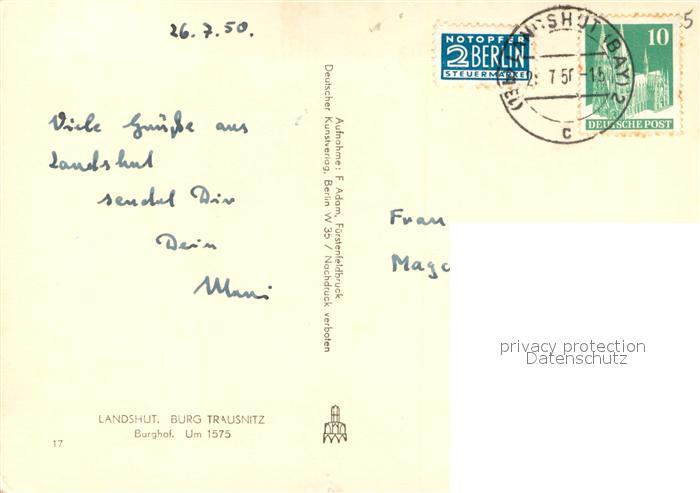 26.7.50.
Viele Grüße aus
Landshut
sendet Dir
Dein
Frau
Mag
NOTOPFER
2 BERLIN
STEUERMARKE
LANDSHUT (BAY) 2
7 50
c
10
DEUTSCHE POST
5
Aufnahme: F. Adam, Fürstenfeldbruck
Deutscher Kunstverlag, Berlin W 35 / Nachdruck verboten
privacy protection
Datenschutz
LANDSHUT. BURG TRAUSNITZ
Burghof. Um 1575
17